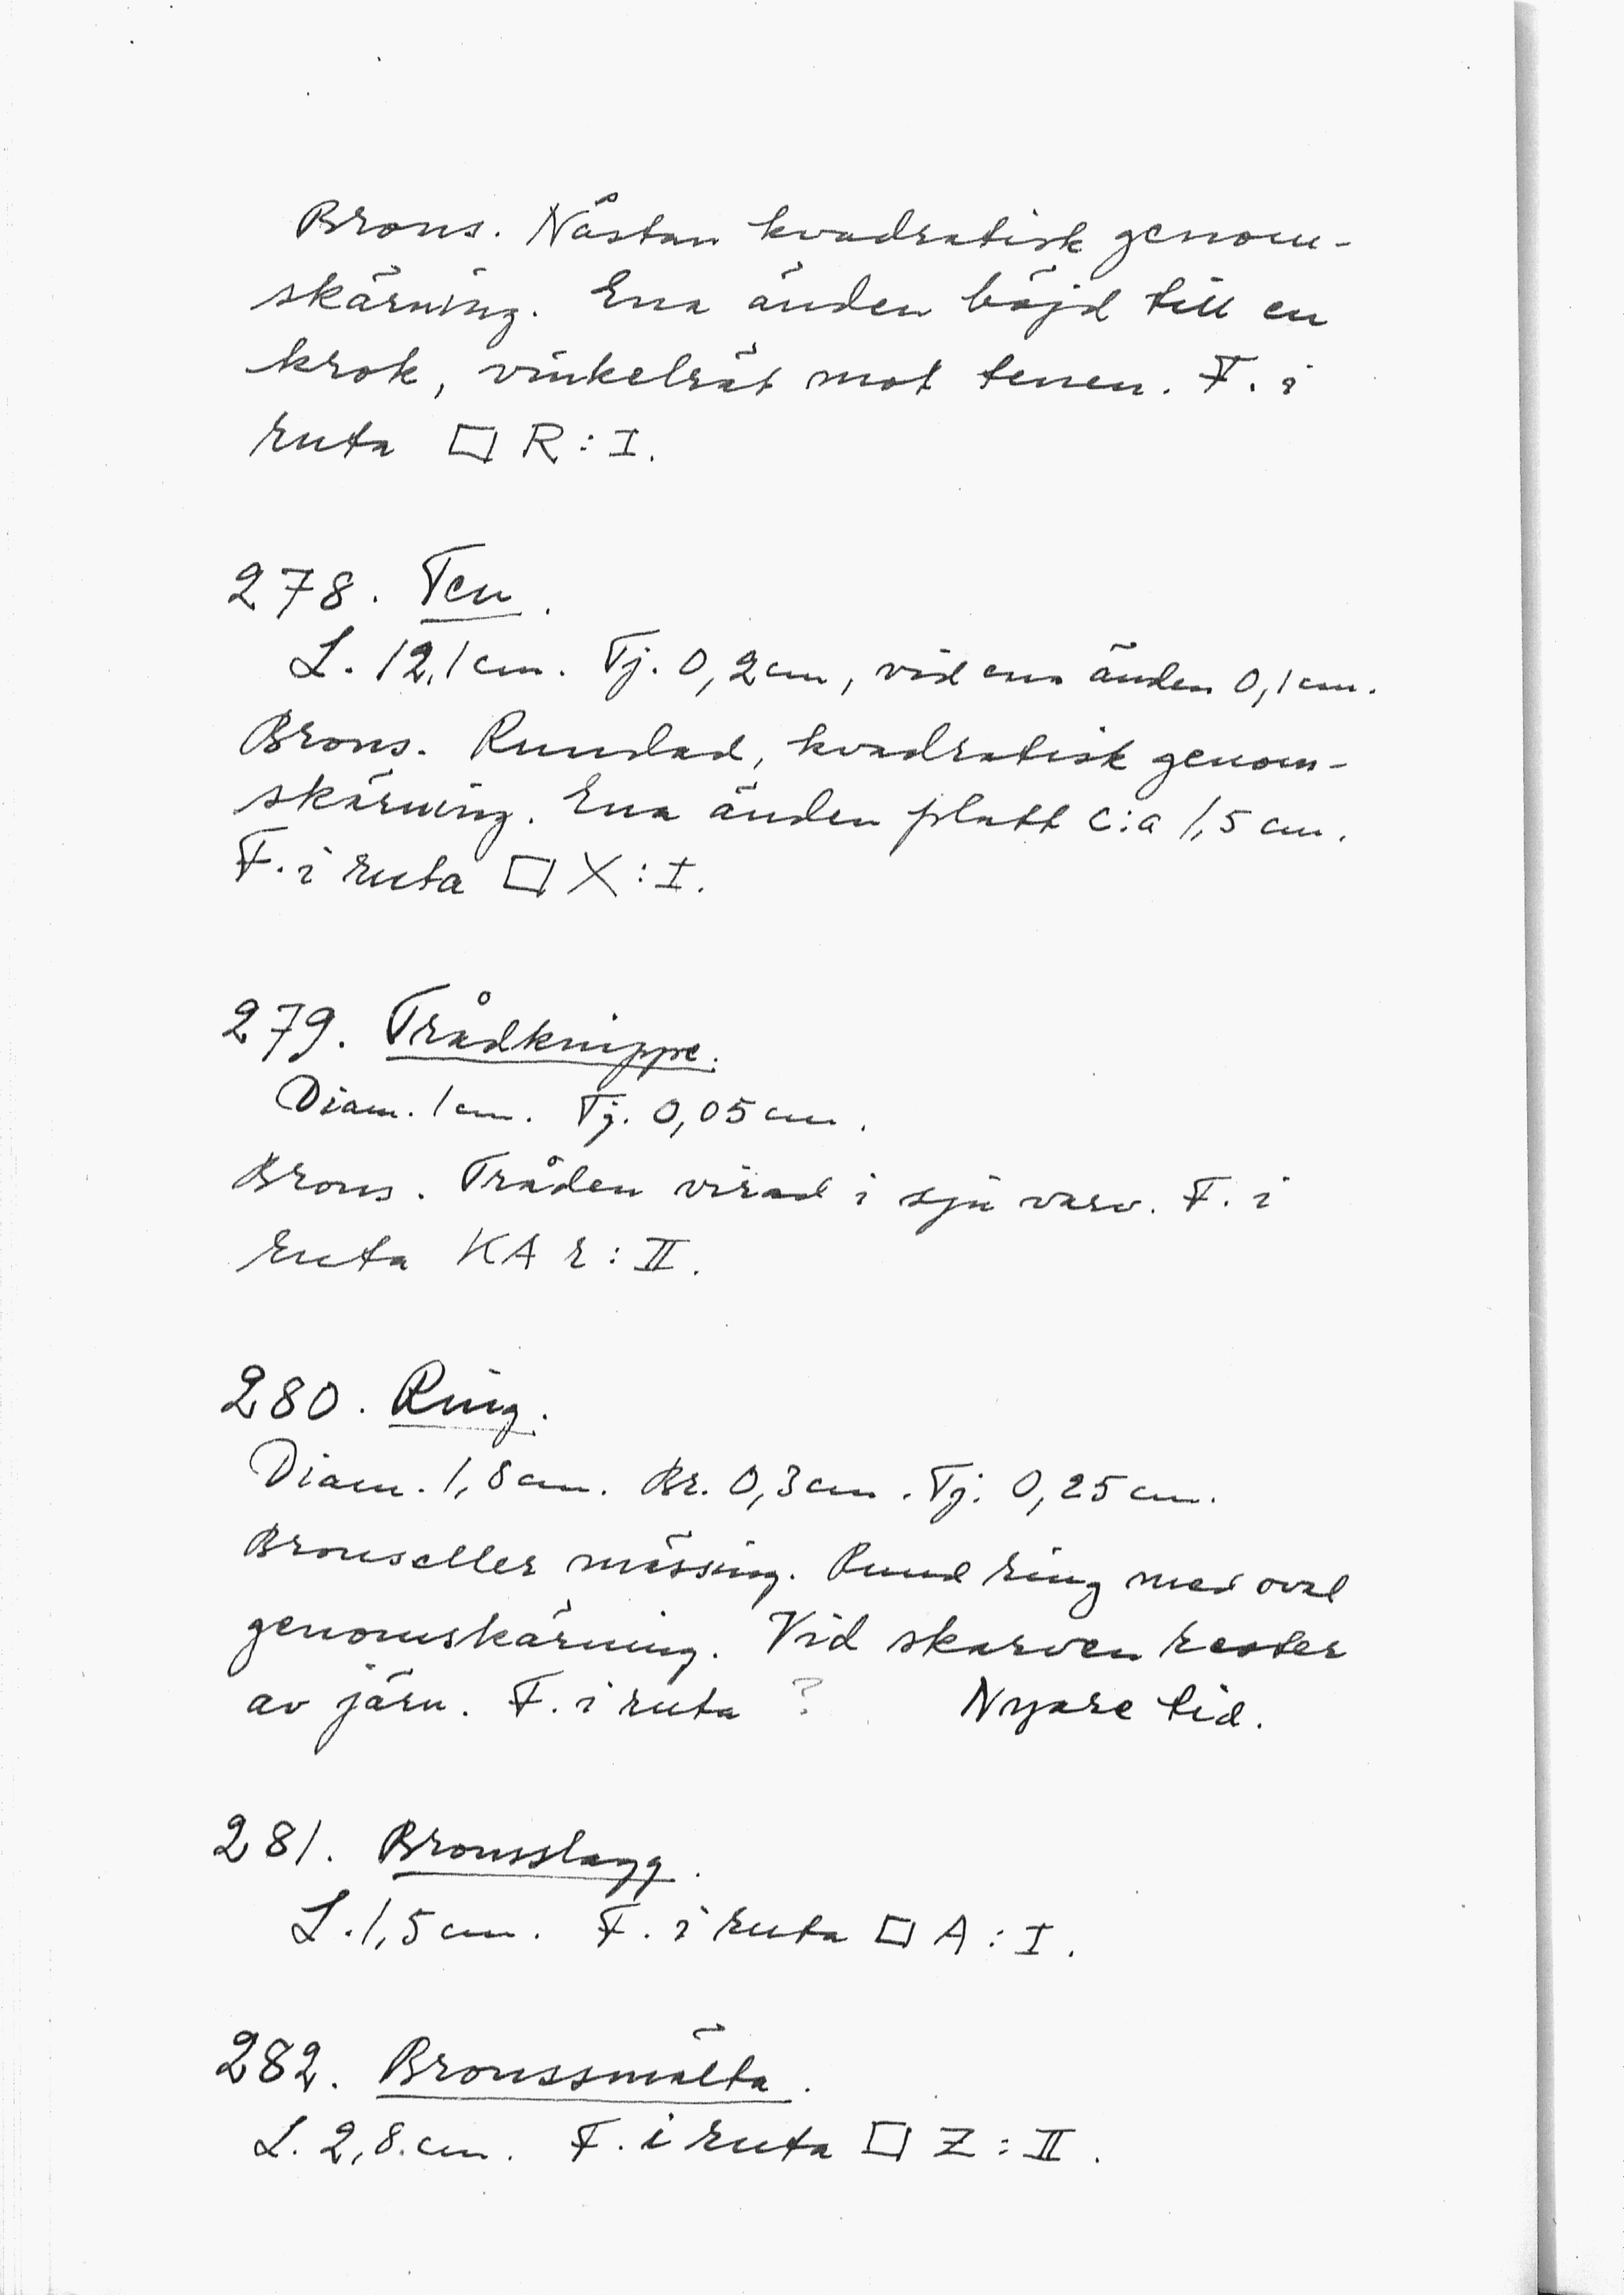 Brons. Nästan kvadratisk genom-
skärning. Ena änden böjd till en
krok, vinkelrät mot tenen. F. i
ruta □ R : I.
278. Ten.
L. 12,1 cm. Tj. 0,2 cm, vid ena änden 0,1 cm.
Brons. Rundad, kvadratisk genom-
skärning. Ena änden platt c:a 1,5 cm.
F. i ruta □ X : I.
279. Trådknippe.
Diam. 1 cm. Tj. 0,05 cm.
Brons. Tråden virad i sju varv. F. i
ruta KA r : II.
280. Ring.
Diam. 1,8 cm. Br. 0,3 cm. Tj. 0,25 cm.
Brons eller mässing. Rund ring med oval
genomskärning. Vid skarven rester
av järn. F. i ruta ? Nyare tid.
281. Bronsslagg.
L. 1,5 cm. F. i ruta □ A : I.
282. Bronssmälta.
L. 2,8 cm. F. i ruta □ Z : II.